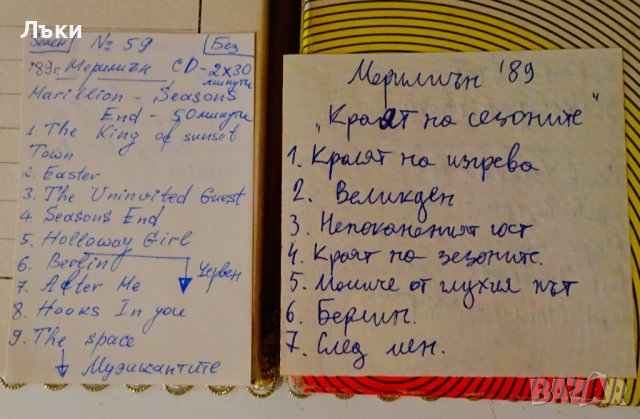 Лъки
Зелен № 59 Без
'89г. Мерилиън CD - 2x30 минути
Marillion - Seasons
End - 50 минути
1. The King of sunset
Town
2. Easter
3. The Uninvited Guest
4. Seasons End
5. Holloway Girl
6. Berlin
7. After Me
Червен
8. Hooks In you
9. The space
Музикантите
Мерилиън '89
"Краят на сезоните"
1. Кралят на изгрева
2. Великден
3. Непоканеният гост
4. Краят на зезоните.
5. Момиче от глухия път
6. Берлин.
7. След мен.
BAZAR